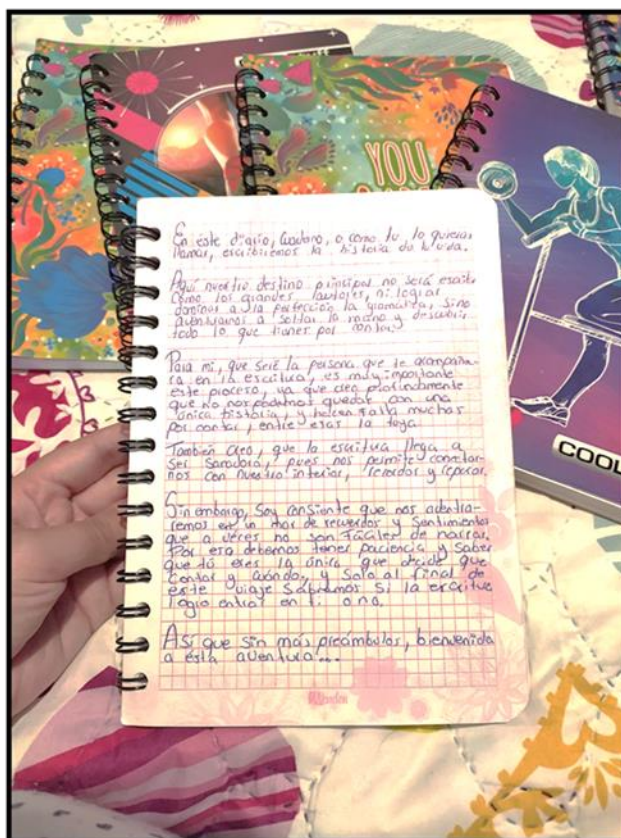 YOU
COOL
En éste diario, Cuaderno, o como tu lo quieras
llamar, escribiremos la historia de tu vida.
Aquí nuestro destino principal no será escribir
Como los grandes autores, ni lograr
dominar a la perfección la gramática, sino
aventurarnos a soltar la mano y descubrir
todo lo que tienes por contar.
Para mi, que seré la persona que te acompaña-
ra en la escritura, es muy importante
este proceso, ya que creo profundamente
que no nos podemos quedar con una
única historia, y hacen falta muchas
por contar, entre esas la tuya.
También creo, que la escritura llega a
ser sanadora, pues nos permite conectar-
nos con nuestro interior, recordar y reparar.
Sin embargo, soy consiente que nos adentra-
remos en un mar de recuerdos y sentimientos
que a veces no son fáciles de narrar.
Por eso debemos tener paciencia y saber
que tú eres la única que decide que
contar y cuándo, y solo al final de
este viaje sabremos si la escritura
logro entrar en ti o no.
Así que sin más preámbulos, bienvenida
a ésta aventura...